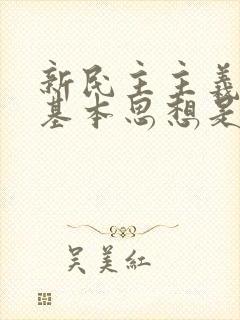 新民主主義
基本思想是
吴美紅